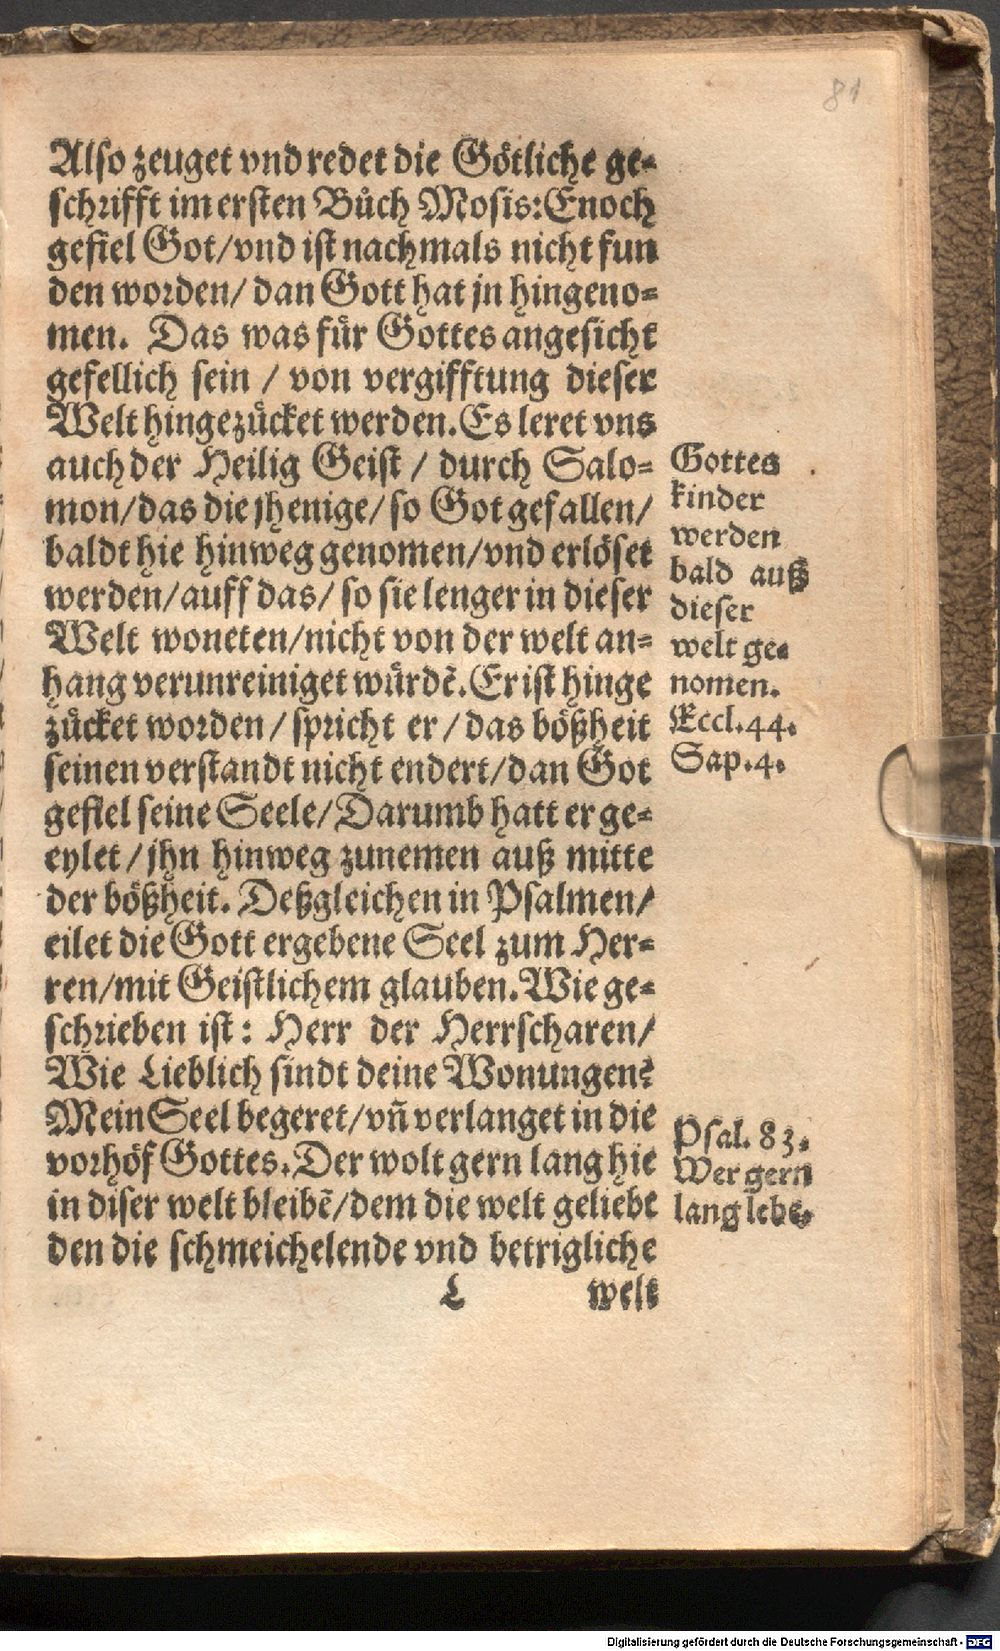 81
Also zeuget vnd redet die Götliche ge-
schrifft im ersten Bůch Mosis: Enoch
gefiel Got/vnd ist nachmals nicht fun
den worden/ dan Gott hat jn hingeno-
men. Das was für Gottes angesicht
gefellich sein / von vergifftung dieser
Welt hingezücket werden. Es leret vns
auch der Heilig Geist / durch Salo-
mon/das die jhenige/ so Got gefallen/
baldt hie hinweg genomen/vnd erlöset
werden/auff das/ so sie lenger in dieser
Welt woneten/nicht von der welt an-
hang verunreiniget würdẽ. Er ist hinge
zücket worden / spricht er / das bößheit
seinen verstandt nicht endert/dan Got
gefiel seine Seele/Darumb hatt er ge-
eylet / jhn hinweg zunemen auß mitte
der bößheit. Deßgleichen in Psalmen/
eilet die Gott ergebene Seel zum Her-
ren/mit Geistlichem glauben. Wie ge-
schrieben ist: Herr der Herrscharen/
Wie Lieblich sindt deine Wonungen?
Mein Seel begeret/vñ verlanget in die
vorhöf Gottes. Der wolt gern lang hie
in diser welt bleibẽ/dem die welt geliebt
den die schmeichelende vnd betrigliche
L welt
Gottes
kinder
werden
bald auß
dieser
welt ge-
nomen.
Eccl.44.
Sap.4.
Psal. 83.
Wer gern
lang lebe.
Digitalisierung gefördert durch die Deutsche Forschungsgemeinschaft - DFG